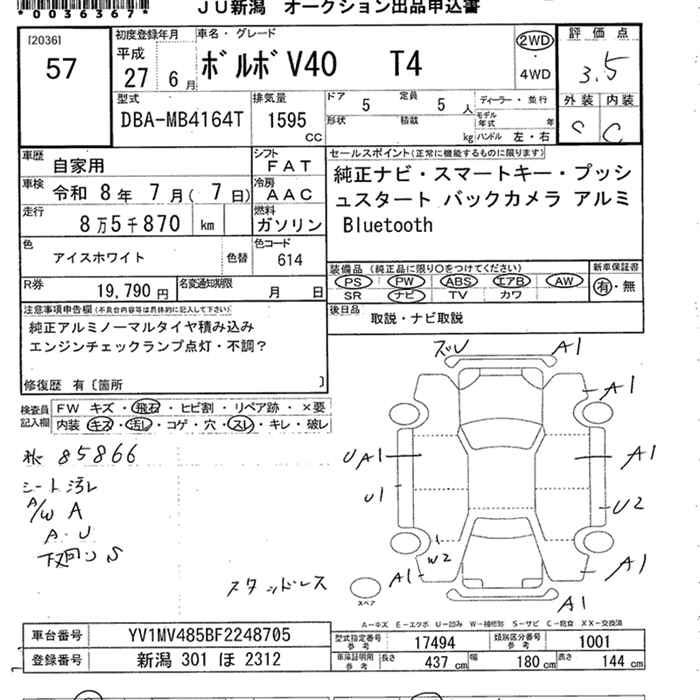 *0036367*
JU新潟 オークション出品申込書
[2036]
57
初度登録年月
平成
27 6 月
車名・グレード
ボルボV40 T4
2WD
・
4WD
評価点
3.5
外装 内装
C C
型式
DBA-MB4164T
排気量
1595
CC
ドア 5 定員 5 人
形状 積載 kg
ディーラー・並行
モデル年式 年
ハンドル 左・右
車歴 自家用
シフト FAT
車検 令和 8年 7月( 7日)
冷房 AAC
走行 8万5千870 km
燃料 ガソリン
色 アイスホワイト 色替
色コード 614
R券 19,790円
名変通知期限 月 日
セールスポイント(正常に機能するものに限ります)
純正ナビ・スマートキー・プッシ
ュスタート バックカメラ アルミ
Bluetooth
装備品 (純正品に限り○をつけてください)
PS PW ABS エアB AW
SR ナビ TV カワ
新車保証書
有・無
後日品 取説・ナビ取説
注意事項申告欄(不具合内容等は具体的に記入して下さい)
純正アルミノーマルタイヤ積み込み
エンジンチェックランプ点灯・不調?
修復歴 有〔箇所 〕
検査員記入欄
FW キズ・飛石・ヒビ割・リペア跡・×要
内装 キズ・汚し・コゲ・穴・スレ・キレ・破レ
85866
シート汚レ
A/W A
A・U
下廻りS
スタッドレス
スペア
ズレ A1
A1
UA1
A1
U1
U2
W2
A1
A1
A1
A-キズ E-エクボ U-凹み W-補修跡 S-サビ C-腐食 XX-交換済
車台番号 YV1MV485BF2248705
登録番号 新潟 301 ほ 2312
型式指定番号 参考 17494
類別区分番号 参考 1001
車庫証明用 参考 長さ 437 cm 幅 180 cm 高さ 144 cm